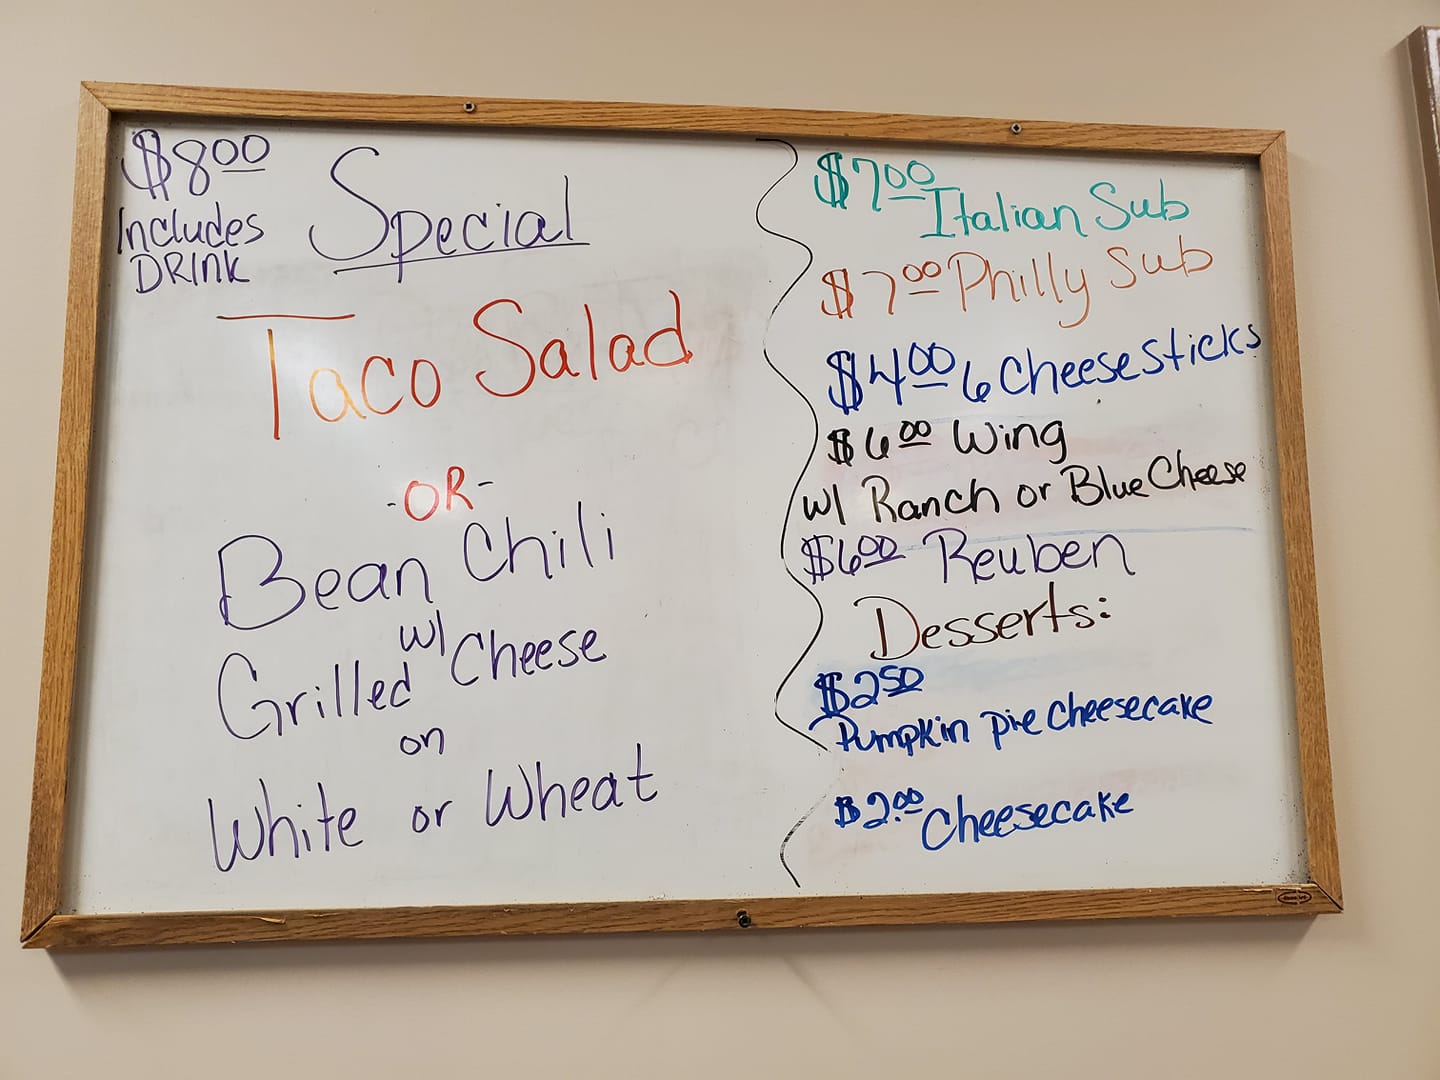 $8.00
Includes
DRINK
Special
Taco Salad
-OR-
Bean Chili
w/
Grilled Cheese
on
White or Wheat
$7.00 Italian Sub
$7.00 Philly Sub
$4.00 6 Cheese sticks
$6.00 Wing
w/ Ranch or Blue Cheese
$6.00 Reuben
Desserts:
$2.50
Pumpkin pie cheesecake
$2.00 Cheesecake